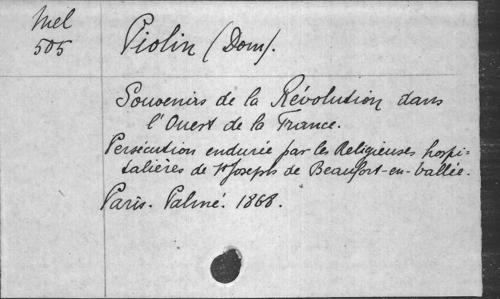 Mél
505
Piolin (Dom).
Souvenirs de la Révolution dans
l'Ouest de la France.
Persécution endurée par les Religieuses hospi-
talières de St Joseph de Beaufort-en-Vallée.
Paris. Palmé. 1868.